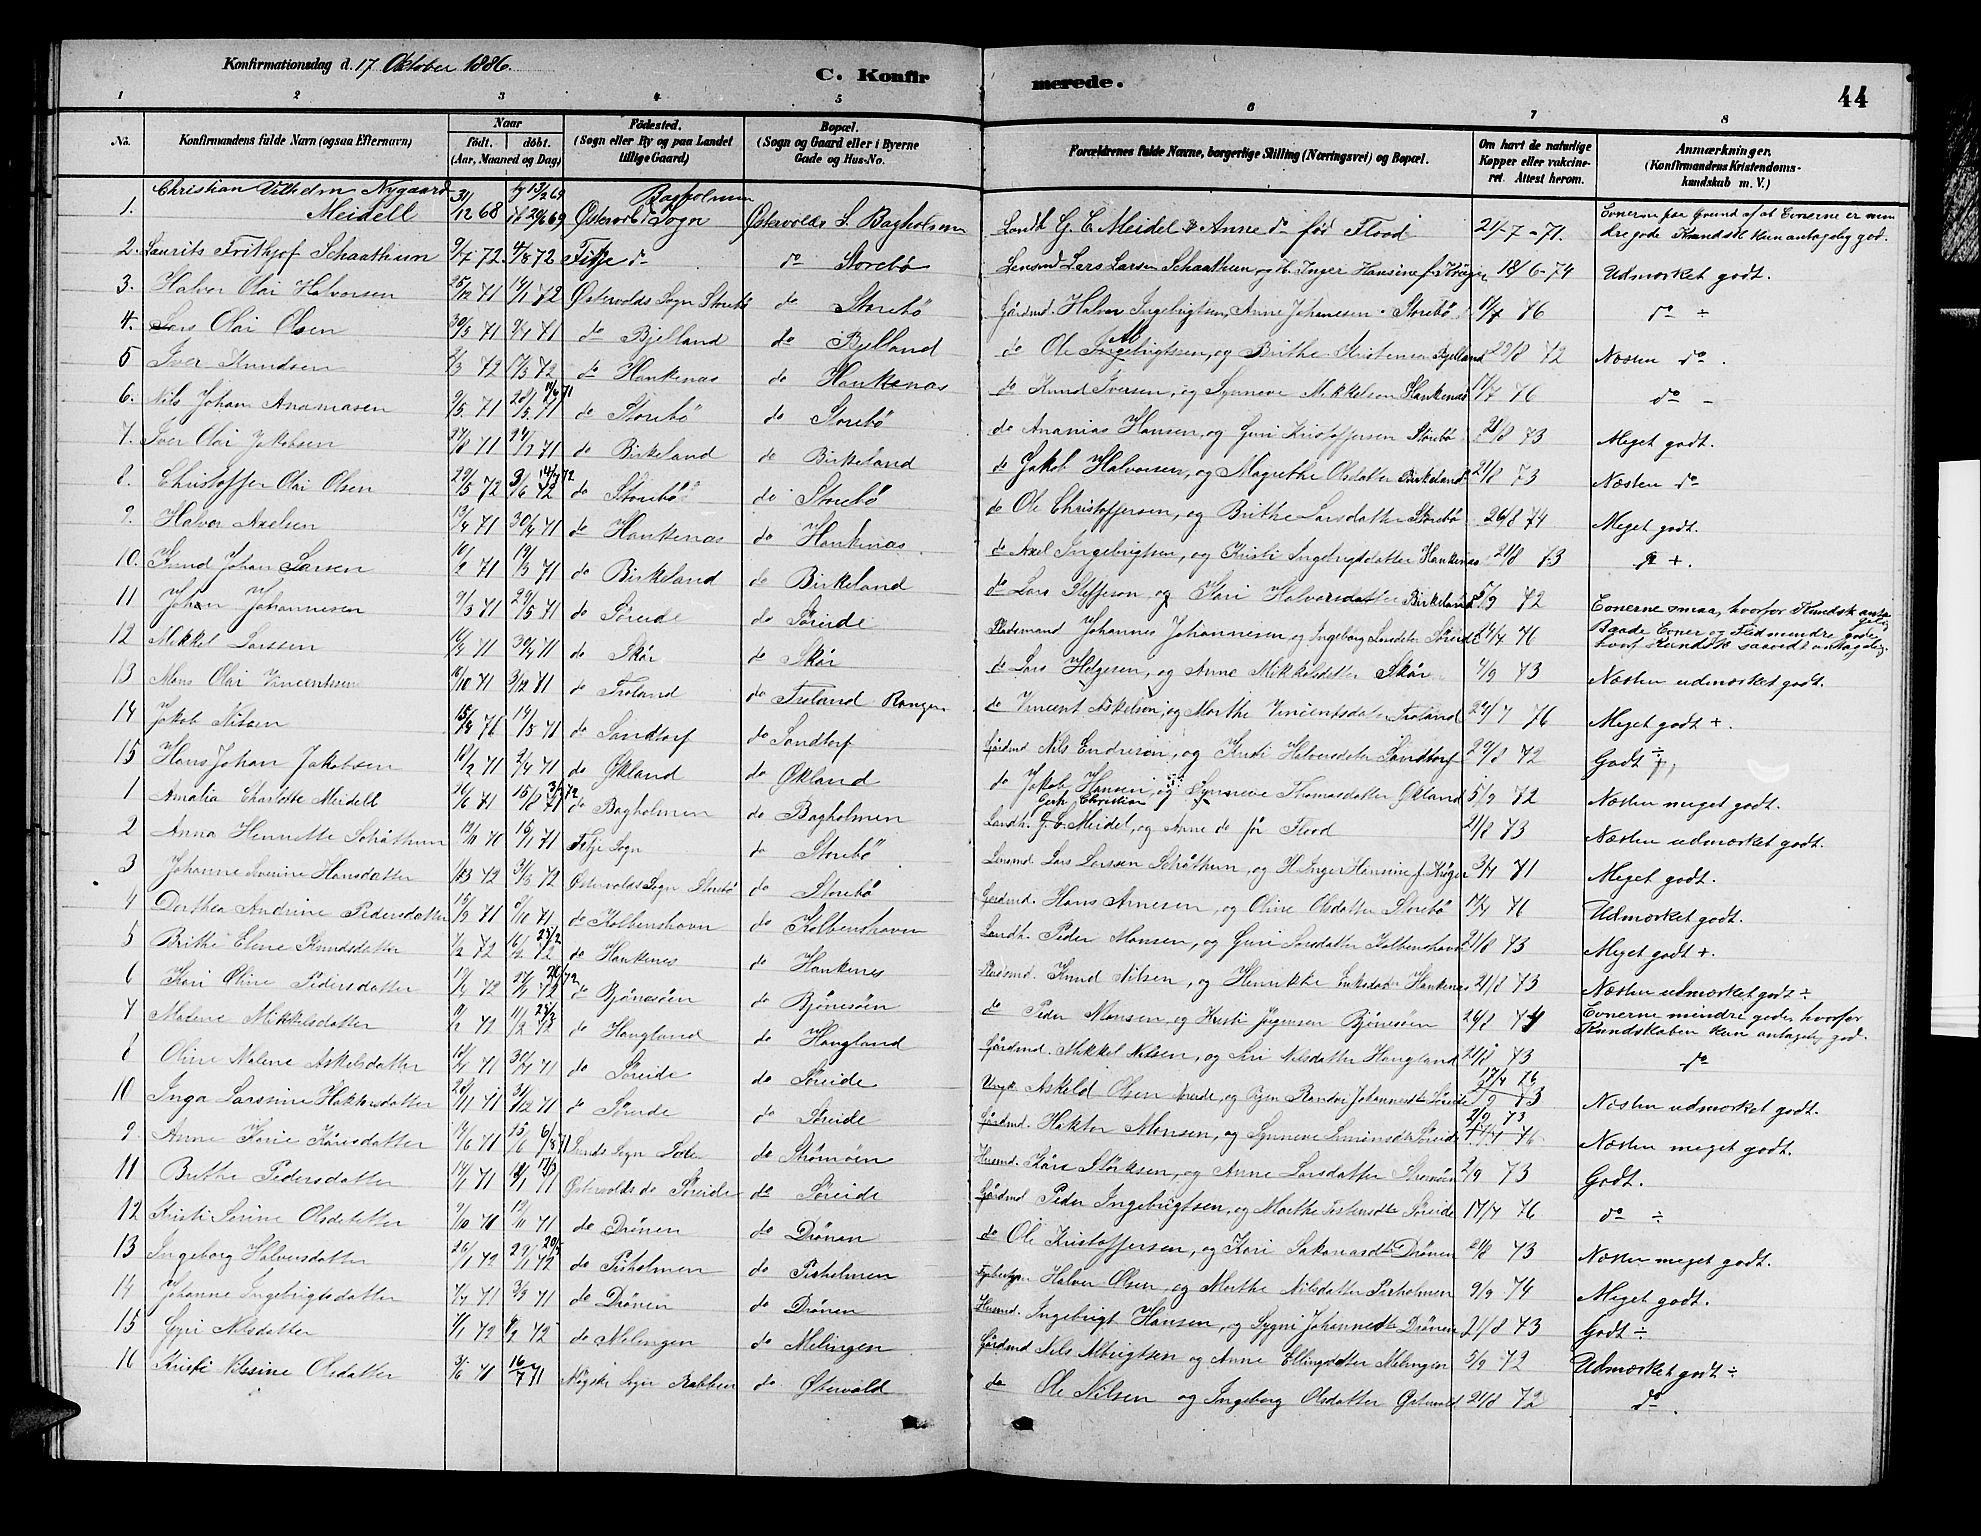 Konfirmationsdag d. 17 Oktober 1886.
C. Konfir
merede.
44
1 2 3 4 5 6 7 8
No. Konfirmandens fulde Navn (ogsaa Efternavn) Naar födt. döbt. (Aar, Maaned og Dag) Födested. (Sogn eller By og paa Landet tillige Gaard) Bopæl. (Sogn og Gaard eller i Byerne Gade og Hus-No. Forældrenes fulde Navne, borgerlige Stilling (Næringsvei) og Bopæl. Om havt de naturlige Kopper eller vakcineret. Attest herom. Anmærkninger. (Konfirmandens Kristendomskundskab m. V.)
1. Christian Vilhelm Nygaard Meidell 31/12 68 Bagholmen Østervolds Sogn Østervolds S. Bagholmen Landh. G. C. Meidel & Anne do før Flood 21-7-71.
2. Laurits Frithjof Schaathun 9/7 72 4/8 72 Fitje do do Storebø Lensmd Lars Larsen Schaathun, og H. Inger Hansine f. Krüger 18/6-74 Udmærket godt.
3. Halvor Olai Halvorsen 25/12 71 14/1 72 Østervolds Sogn Storebö do Storebö Gårdmd. Halvor Ingebrigtsen, Anne Johanesen Storebö 17/7 76 do ÷
4. Lars Olai Olsen 30/5 71 9/7 71 do Bjelland do Bjelland do Ole Ingebrigtsen, og Brithe Kristense Bjelland 29/8 72 Næsten do.
5 Iver Knudsen 2/3 72 17/3 72 do Haukenæs do Haukenæs do Knud Iversen, og Synneve Mikkelsen Haukenæs 17/7 76 do -
6. Nils Johan Ananiasen 9/5 71 20/5 71 do Storebö do Storebö do Ananias Hansen, og Guri Kristoffersen Storebö 21/8 73 Meget godt.
7. Iver Olai Jakobsen 27/8 71 24/9 71 do Birkeland do Birkeland do Jakob Halvorsen, og Magrethe Olsdatter Birkeland 21/8 73 Næsten do
8. Christoffer Olai Olsen 29/5 72 9/6 72 do Storebö do Storebö do Ole Christoffersen, og Brithe Larsdatter Storebö 26/8 74 Meget godt.
9. Halvor Axelsen 13/4 71 30/4 71 do Haukenæs do Haukenæs do Axel Ingebrigtsen, og Kristi Ingebrigtsdatter Haukenæs 21/8 73 do +.
10. Knud Johan Larsen 16/2 71 19/3 71 do Birkeland do Birkeland do Lars Steffeson, og Kari Halvorsdatter Birkeland 5/9 72 Evnerne smaa, hvorfor Kundsk. antagelig
11 Johan Johannesen 9/3 71 29/5 71 do Søreide do Søreide Pladsmand Johannes Johannesen og Ingeborg Larsdatter Søreide 24/7 76 Baade Evner og Flid mindre gode, hvorf. Kundsk saavidt antagelig.
12 Mikkel Larssen 16/4 71 30/4 71 do Skår do Skår do Lars Helgesen, og Anne Mikkelsdatter Skår 4/9 73 Næsten udmærket godt.
13 Mons Olai Vincentsen 16/10 71 3/12 71 do Troland do Troland Rangen do Vincent Askelsen, og Marthe Vincentsdatter Troland 24/7 76 Meget godt +.
14 Jakob Nilsen 14/5 71 do Sandtorf do Sandtorf Gårdmd Nils Endresen, og Kristi Halvorsdatter Sandtorf 29/8 72 Godt ÷
15 Hans Johan Jakobsen 18/2 71 2/4 71 do Økland do Økland do Jakob Hansen, og Synneve Thomasdatter Økland 5/9 72 Næsten meget godt.
1 Amalia Charlotte Meidell 26/6 71 15/8 71 do Bagholmen do Bagholmen Landh. G. C. Meidel, og Anne do før Flood 21/8 73 Næsten udmærket godt.
2 Anna Henriette Schåthun 12/11 70 15/1 71 Fitje Sogn do Storebö Lensmd. Lars Larsen Schåthun, og H. Inger Hansine f. Krüger 3/7 71 Meget godt.
3 Johanne Severine Hansdatter 10/3 72 31/3 72 Østervolds Sogn Storebö do Storebö Gårdmd. Hans Arnesen, og Oline Olsdatter Storebö 17/7 76 Udmærket godt.
4 Dorthea Andrine Pedersdatter 15/9 71 8/10 71 do Kolbenshavn do Kolbenshaven Landh. Peder Monsen, og Guri Larsdatter Kolbenshavn 21/8 73 Meget godt +.
5 Brithe Elene Knudsdatter 7/2 72 16/2 72 do Haukenes do Haukenes Pladsmd. Knud Nilsen, og Henrikke Eriksdatter Haukenæs 21/8 73 Næsten udmærket godt ÷
6 Kari Oline Pedersdatter do Bjönesöen do Bjönesöen do Peder Monsen, og Kristi Jörgensen Bjönesöen 26/8 74 Evnerne mindre gode, hvorfor Kundskaben kun antagelig god.
7 Malene Mikkelsdatter do Haugland do Haugland Gårdmd. Mikkel Nilsen, og Siri Nilsdatter Haugland 21/8 73 do
8 Oline Malene Askelsdatter 30/4 71 do Søreide do Søreide Askeld Olsen Søreide, og Randvi Johannesdtr Søreide Næsten udmærket godt.
10 Inga Larssine Haktorsdatter 20/11 71 31/12 71 do Søreide do Søreide Gårdmd. Haktor Monsen, og Synneve Simonsdtr Søreide 17/7 76 Næsten meget godt.
9 Anne Karie Kårisdatter Sunds Sogn do Strømöen Husmd. Kåre Störksen, og Anne Larsdatter Strømöen 2/9 73 Godt.
11 Brithe Pedersdatter Østervolds do Søreide do Søreide Gårdmd Peder Ingebrigtsen, og Marthe Tostensdtr Søreide 17/7 76 do ÷
12 Kristi Serine Olsdatter 9/10 70 12/11 71 do Drönen do Drönen do Ole Kristoffersen, og Kari Sakariasdtr Drönen 21/8 73 Næsten meget godt.
13 Ingeborg Halvorsdatter 26/1 72 29/1 72 do Pisholmen do Pisholmen Halvor Olsen, og Marthe Nilsdatter Pisholmen 9/9 74 Meget godt.
14 Johanne Ingebrigtsdatter 7/7 71 3/9 71 do Drönen do Drönen Husmd. Ingebrigt Hansen, og Sygni Johannesdtr Drönen 21/8 73 Godt ÷
15 Guri Nilsdatter 7/1 72 do Melingen do Melingen Gårdmd Nils Albrigtsen og Anne Ellingsdatter Melingen 5/9 72 Udmærket godt ÷
16 Kristi Nilssine Olsdatter 16/7 71 Rabben do Østervold do Ole Nilsen og Ingeborg Olsdatter Østervold 21/8 72 do.